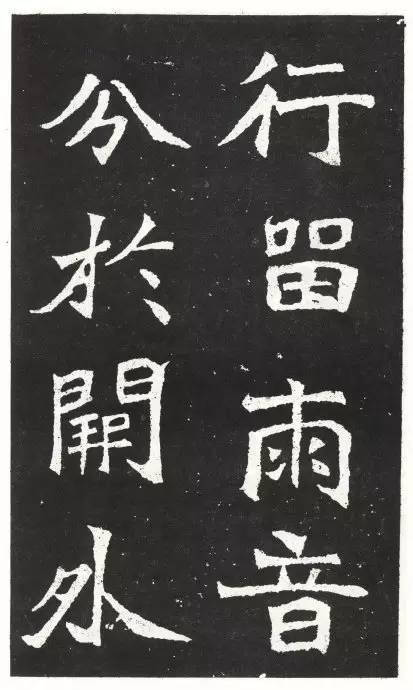 行留雨音
分於開外